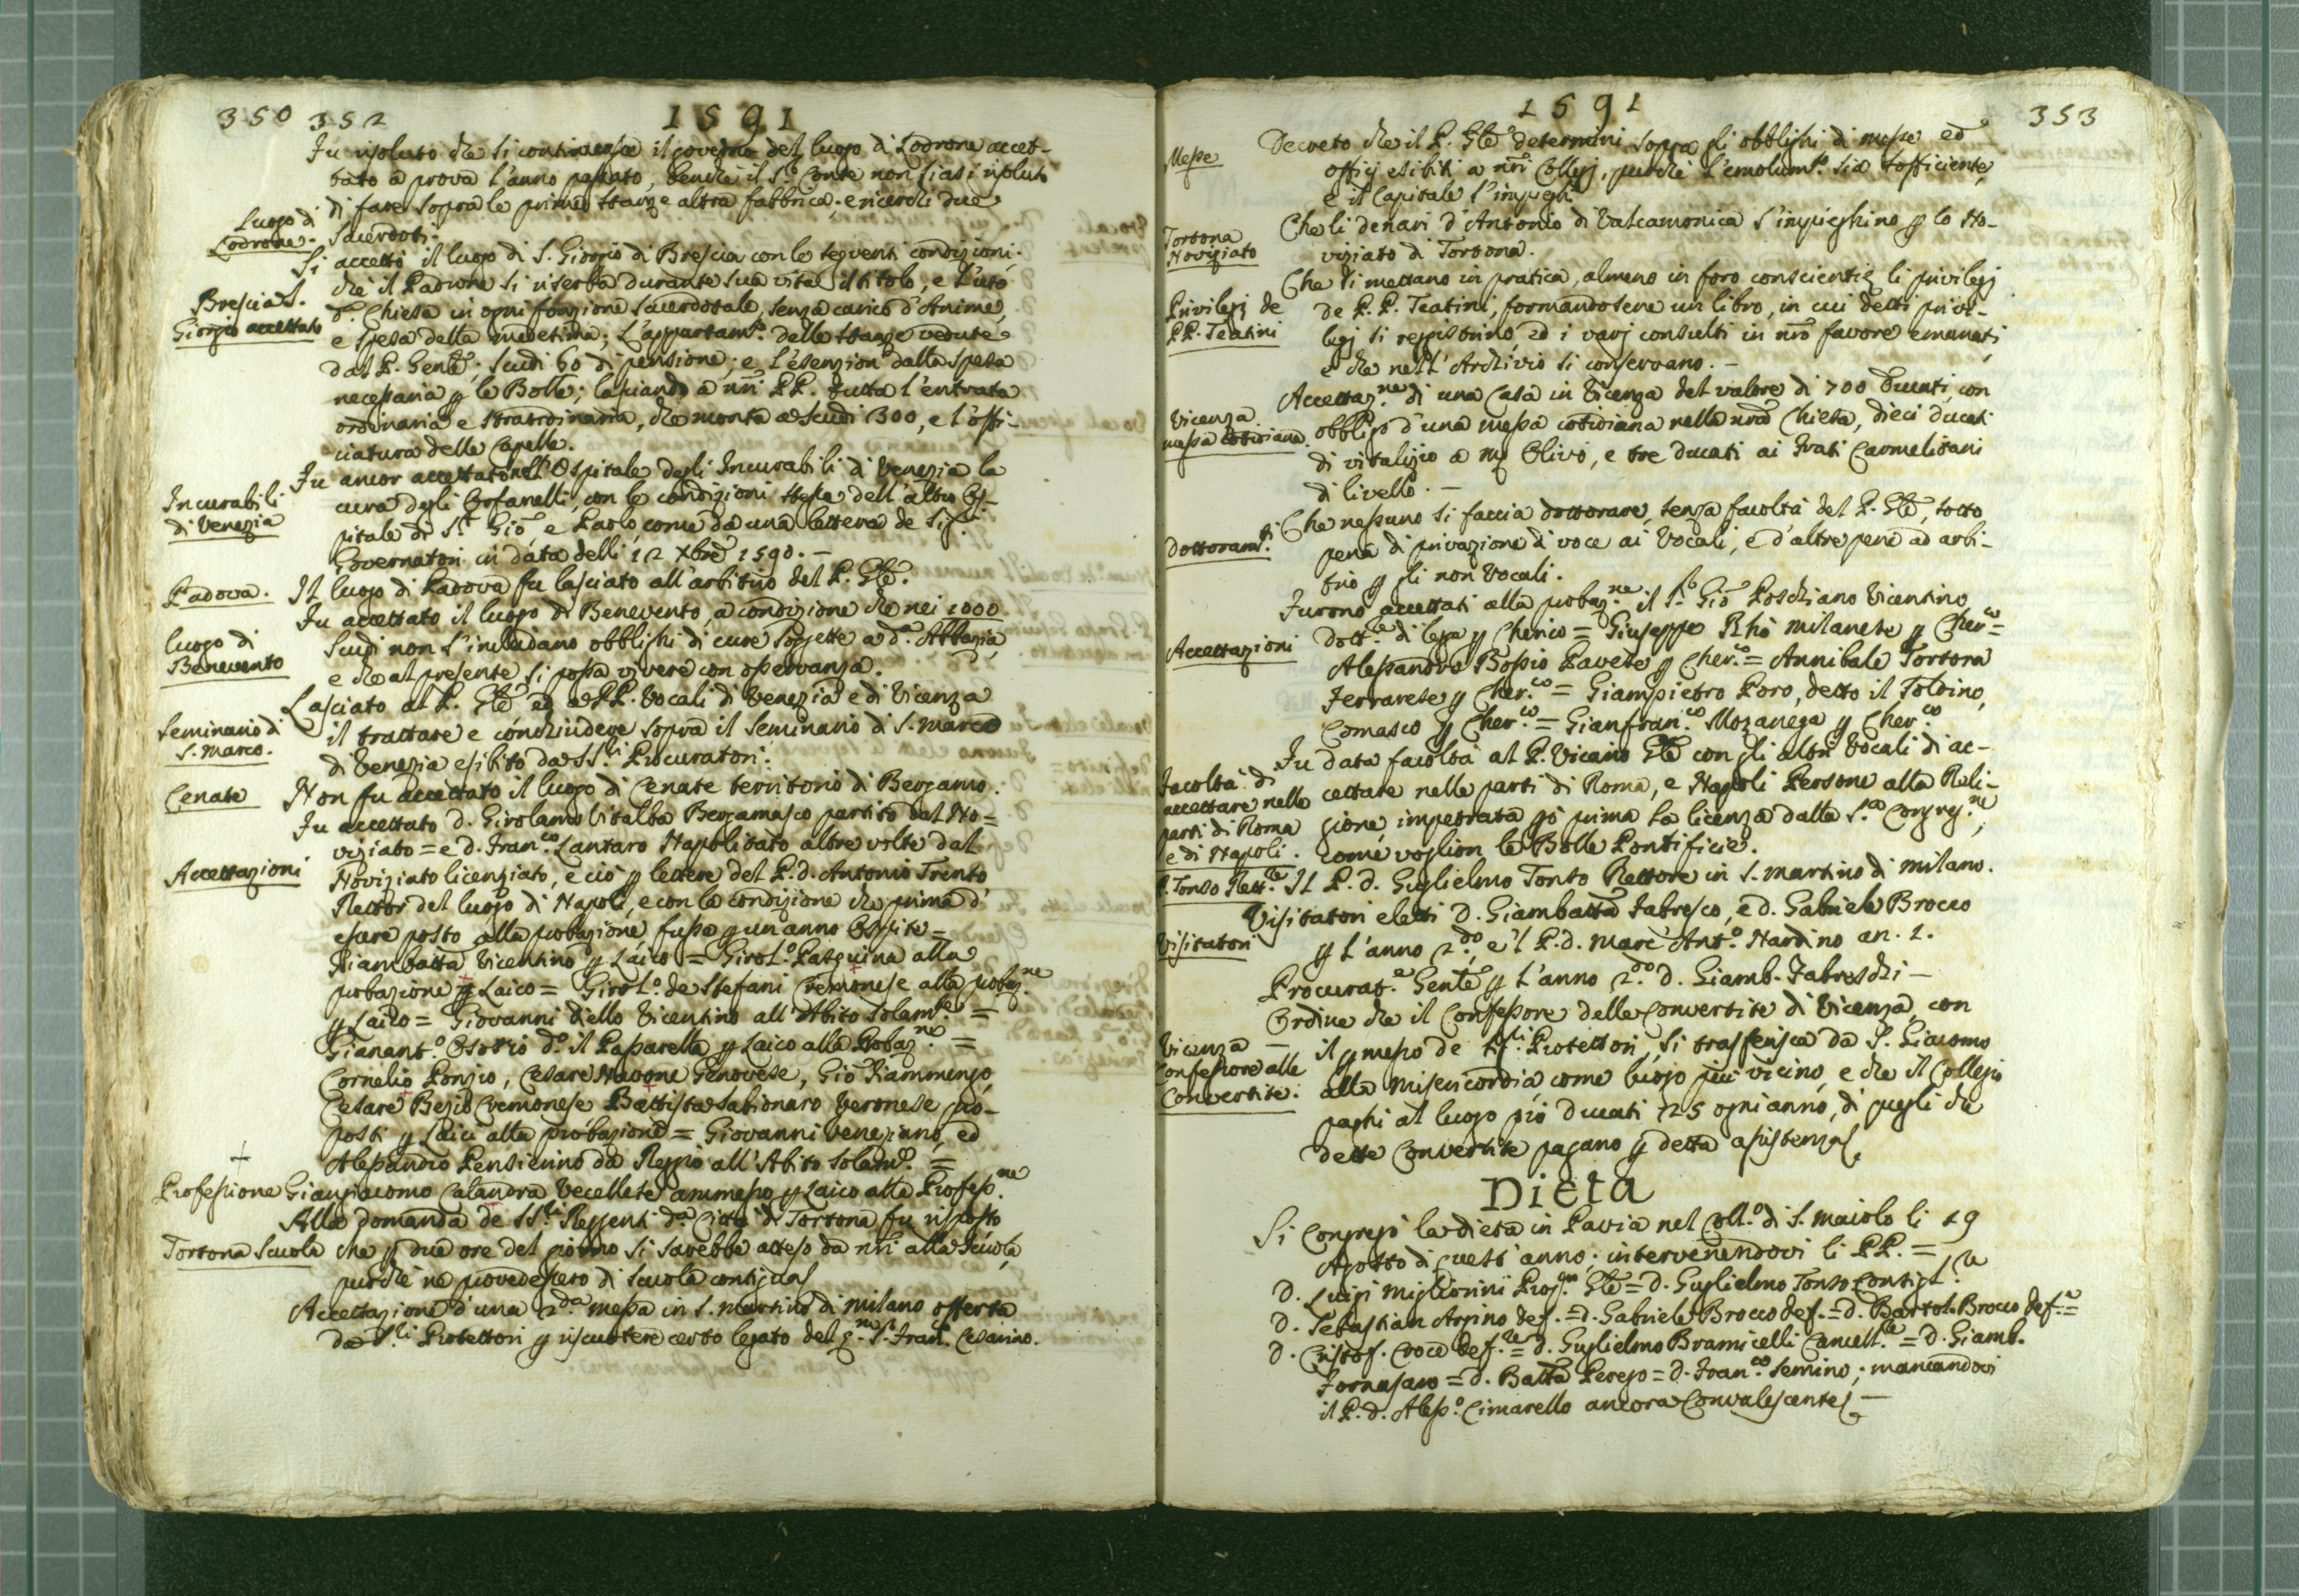 350 352
1591
Fu risoluto che si continuasse il governo del luogo di Lodrone accet-
tato a prova l'anno passato, benche il S.r Conte non siasi risoluto
di fare sopra le prime stanze altra fabbrica; e ricerchi due
Luogo di
Lodrone.
Sacerdoti.
Si accettò il luogo di S. Giorgio di Brescia con le seguenti condizioni.
Brescia S.
Giorgio accettato
che il Padrone si riserba durante sua vita il titolo, e l'uso
d.a Chiesa in ogni fonzione Sacerdotale, senza carico d'Anime,
e spesa della medesima; L'appartam.to delle stanze vedute
dal P. Genle; Scudi 60 di pensione; e l'esenzion dalla spesa
necessaria p le Bolle; lasciando a nri PP. tutta l'entrata
ordinaria e straordinaria, che monta a Scudi 300, e l'offi-
ciatura delle Capelle.
Incurabili
di Venezia
Fu ancor accettato nell'Ospitale degli Incurabili di Venezia la
cura degli Orfanelli, con le condizioni stesse dell'altro Os-
pitale di S.ti Gio, e Paolo, come da una lettera de Sig.i
Governatori in data delli 12 Xbre 1590. -
Padova.
Il luogo di Padova fu lasciato all'arbitrio del P. Gle.
luogo di
Benevento
Fu accettato il luogo di Benevento, a condizione che nei 1000
Scudi non s'includano obblighi di cure soggette a d.a Abbazia,
e che al presente si possa vivere con osservanza.
Seminario di
S. Marco.
Lasciato al P. Gle ed a PP. Vocali di Venezia e di Vicenza
il trattare e conchiudere sopra il Seminario di S. Marco
di Venezia esibito da SS.i Procuratori.
Cenate
Non fu accettato il luogo di Cenate territorio di Bergamo.
Accettazioni
Fu accettato D. Girolamo Vitalba Bergamasco partito dal No=
viziato = e d. Fran.co Lantaro Napolitato altre volte dal
Noviziato licenziato, e ciò p lettere del P. d. Antonio Trento
Rettor del luogo di Napoli, e con la condizione che prima d'
essere posto alla probazione fusse p un anno Ospite =
Fiambatta Vicentino p Laico = Girol.o Pasquina alla
probazione p Laico = Girol.o de Stefani Cremonese alla probaz.ne
p Laico = Giovanni Viello Vicentino all'Abito solam.te =
Gianant.o Osorio d.o il Passarella p Laico alla Probaz.ne =
Cornelio Ponzio, Cesare Navone Genovese, Gio Fiammengo,
Cesare Bezio Cremonese Battista Sabionaro Veronese pro-
posti p Laici alla probazione = Giovanni Veneziano, ed
Alessandro Pensierino da Reggio all'Abito solam.te =
Professione
Giangiacomo Calandra Vecellese ammesso p Laico alla Profess.ne
Tortona Scuola
Alla domanda de SS.ri Reggenti d.a Città di Tortona fu risposto
che p due ore del giorno si sarebbe atteso da nri alla Scuola,
purche ne provedessero di Scuola contigua
Accettazione d'una 2.da messa in S. Martino di Milano offerta
da S.ri Protettori p riscuotere certo legato del q.m S.r Fran.co Cesarino.
1591
353
Messe
Decreto che il P. Gle determini sopra gli obblighi di messe ed
officij esibiti a nri Collegj, purche l'emolum.to sia sofficiente,
e il Capitale s'impieghi
Tortona
Noviziato
Che li denari d'Antonio di Valcamonica s'impieghino p lo No-
viziato di Tortona.
Privilegj de
PP. Teatini
Che si mettano in pratica, almeno in foro conscientię li privilegj
de P.P. Teatini, formandosene un libro, in cui detti privi-
legj si registrino, ed i varj consulti in nro favore emanati,
e che nell'Archivio si conservano. -
Vicenza
messa cotidiana.
Accettaz.ne di una Casa in Vicenza del valore di 700 Ducati, con
obbligo d'una messa cotidiana nella nra Chiesa, dieci ducati
di vitalizio a Mg Olivo, e tre ducati ai Frati Carmelitani
di livello. -
Dottoram.ti
Che nessuno si faccia dottorare, senza facoltà del P. Gle, sotto
pena di privazione di voce ai Vocali, e d'altre pene ad arbi-
trio p gli non Vocali.
Accettazioni
Furono accettati alla probaz.ne il S.r Gio Poschiano Vicentino
Dott.re di legge p Cherico = Giuseppe Rhò Milanese p Cher.co =
Alessandro Bossio Pavese p Cher.co = Annibale Tortora
Ferrarese p Cher.co = Giampietro Poro, detto il Toldino,
Comasco p Cher.co = Gianfran.co Mozanega p Cher.co
Facoltà di
accettare nelle
parti di Roma
e di Napoli.
Fu data facoltà al P. Vicario Gle con gli altri Vocali di ac-
cettare nelle parti di Roma, e Napoli Persone alla Reli-
gione, impetrata pò prima la licenza dalla S.ra Congreg.ne,
come voglion le Bolle Pontificie.
P. Tonso Rett.re
Il P. d. Guglielmo Tonso Rettore in S. Martino di Milano.
Visitatori
Visitatori eletti D. Giambatta Fabresco, e d. Gabriele Brocco
p l'anno 2.do, e'l P. d. Marc'Ant.o Nardino an. 1.
Procurat.e Genle p l'anno 2.do d. Giamb. Fabreschi -
Vicenza -
Confessore alle
Convertite.
Ordine che il Confessore delle Convertite di Vicenza, con
il p messo de SS.ri Protettori, si trasferisca da S. Giacomo
alla Misericordia come luogo più vicino, e che il Collegio
paghi al luogo piò Ducati 25 ogni anno, di quegli che
dette Convertite pagano p detta assistenza.
Dieta
Si congregò la dieta in Pavia nel Coll.o di S. Maiolo li 19
Agosto di quest'anno; intervenendovi li PP. =
D. Luigi Migliorini Prop.to Gle = D. Guglielmo Tonso Consigl.re
D. Sebastian Arpino def. = D. Gabriele Brocco def. = D. Bartol. Brocco def.e =
D. Cristof. Croce def.re = d. Guglielmo Bramicelli Cancell.re = D. Giamb.
Fornasaro = d. Batta Perego = D. Fran.co Semino; mancandovi
il P. d. Aless.o Cimarello ancora convalescente -